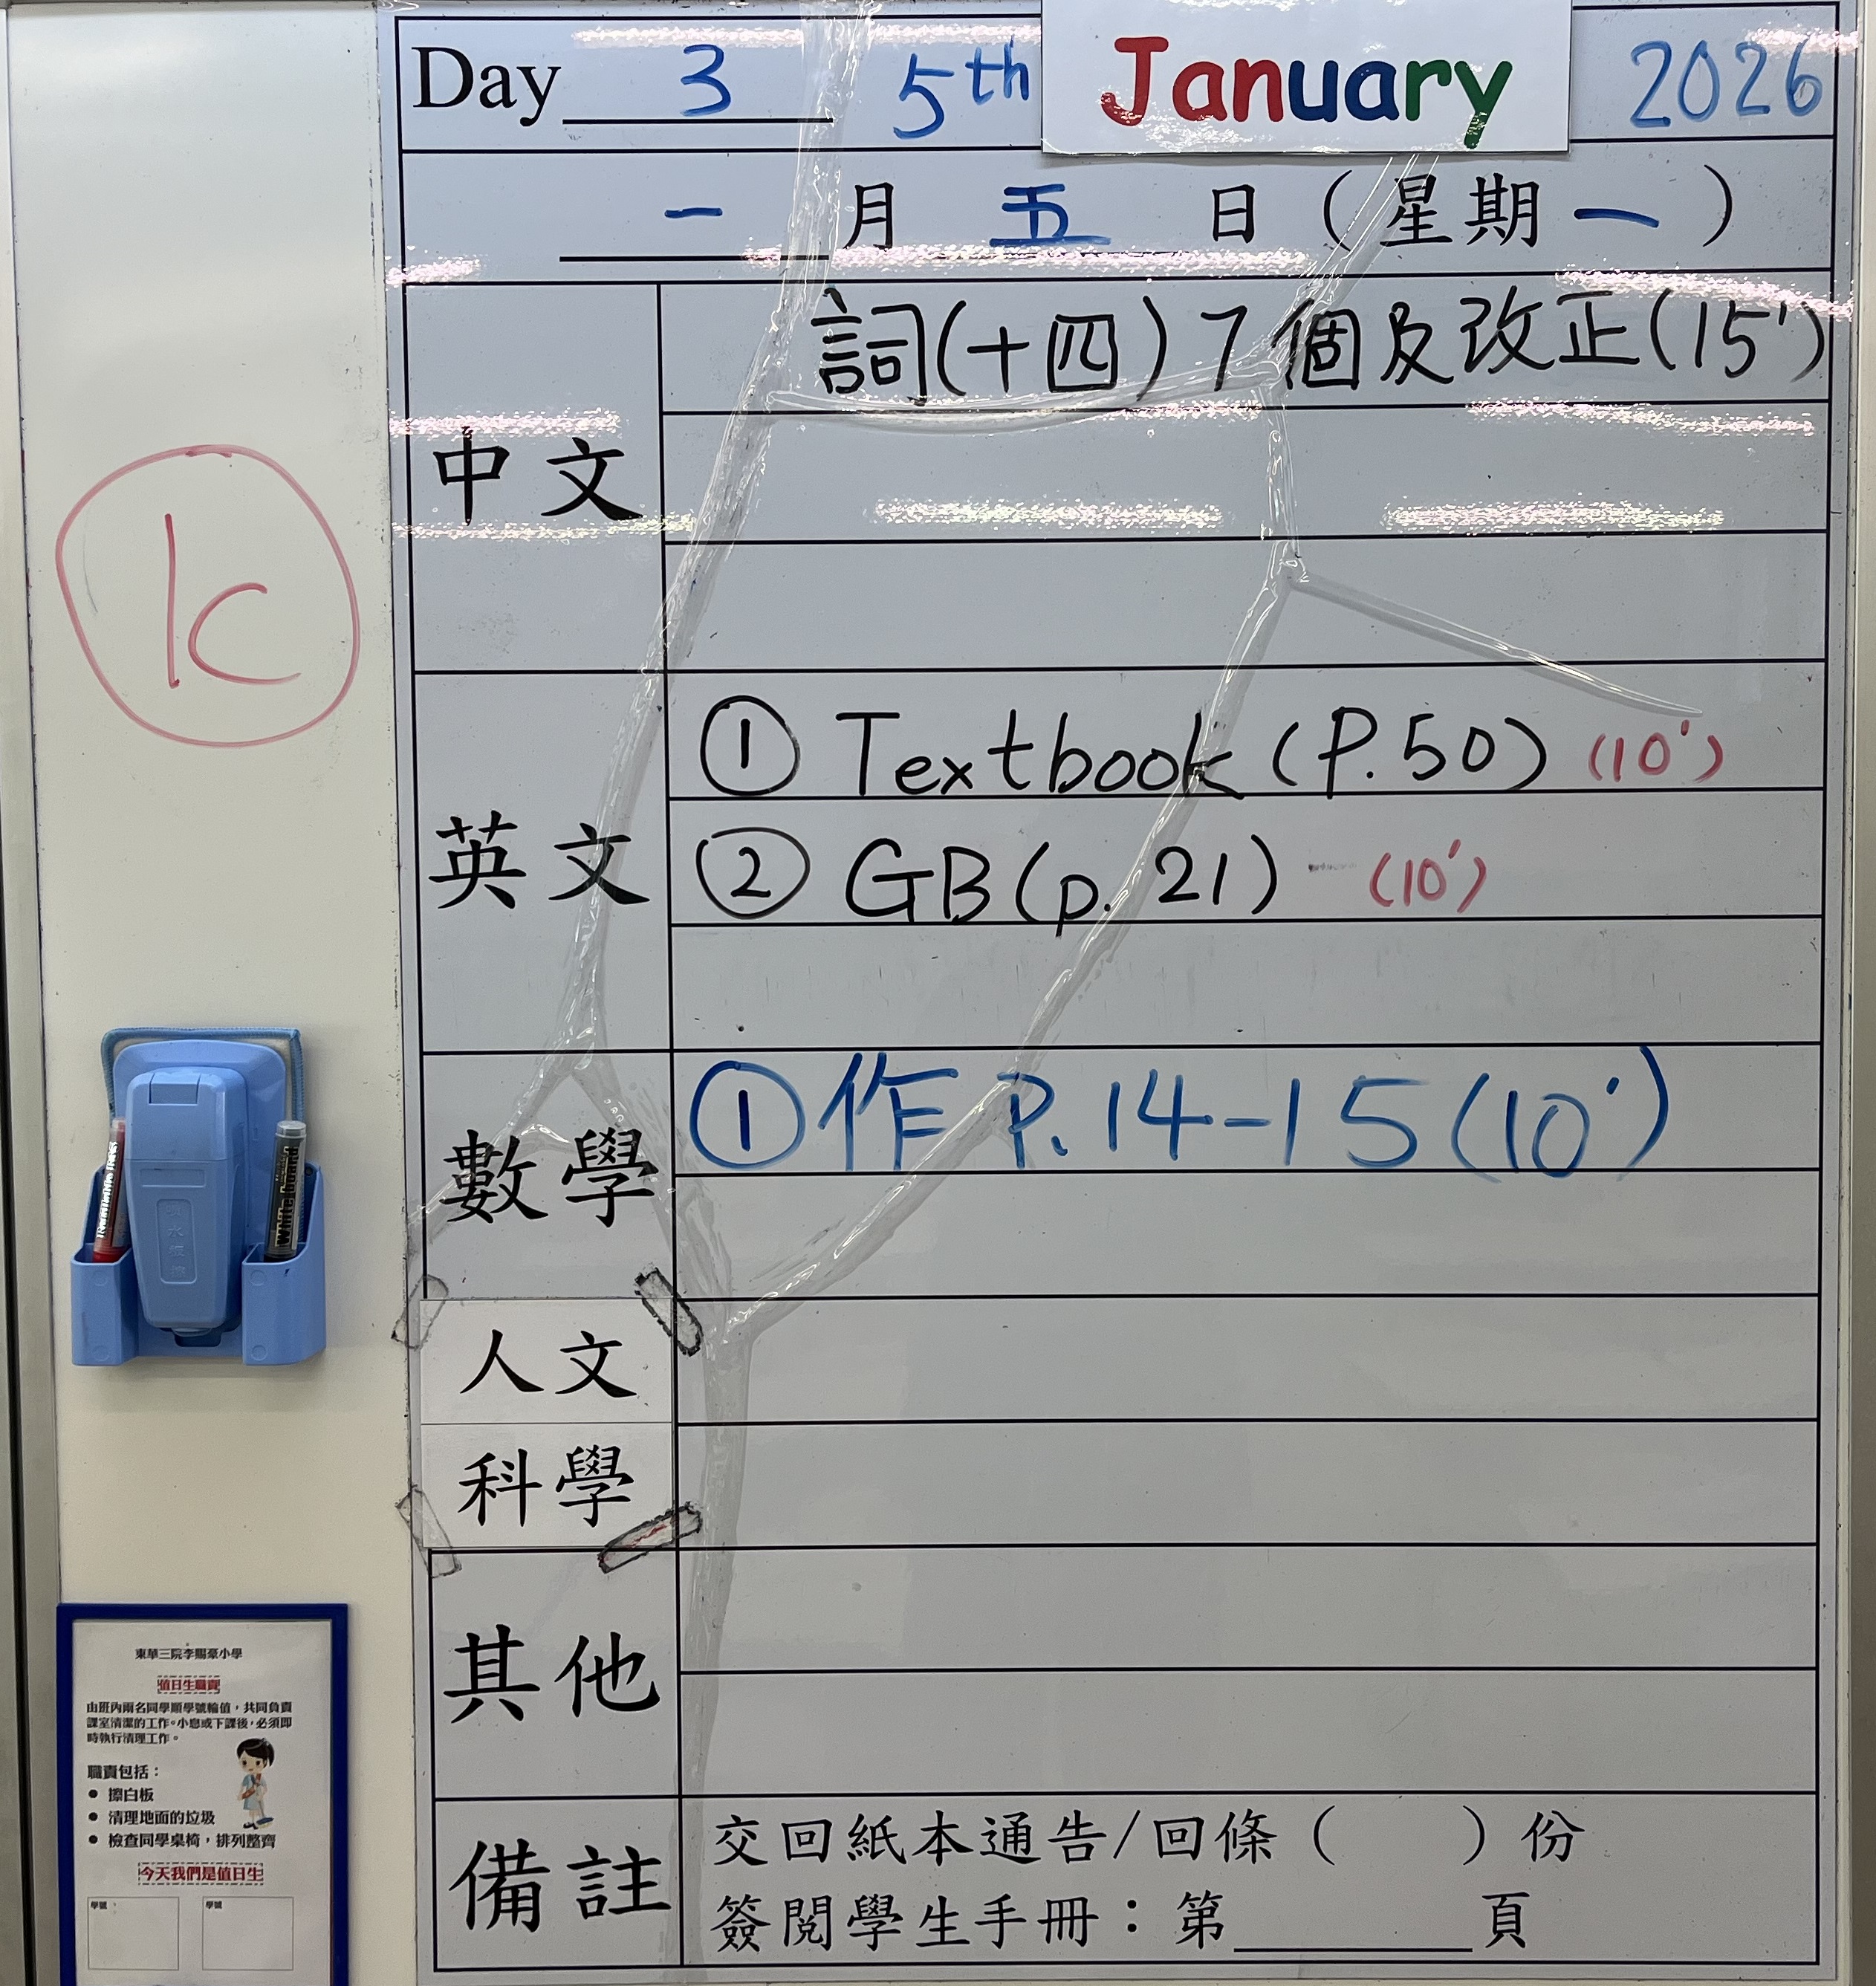 Day 3 5th January 2026
一 月 五 日 (星期一)
中文
詞(十四)7個及改正(15')
k
英文
① Textbook (P.50) (10')
② GB (p. 21) (10')
數學
① 作 P.14-15 (10')
人文
科學
其他
備註
交回紙本通告/回條( )份
簽閱學生手冊：第______頁
Whiteboard
東華三院李賜豪小學
值日生職責
由班內兩名同學順學號輪值，共同負責
課室清潔的工作。小息或下課後，必須即
時執行清理工作。
職責包括：
• 擦白板
• 清理地面的垃圾
• 檢查同學桌椅，排列整齊
今天我們是值日生
學號 學號